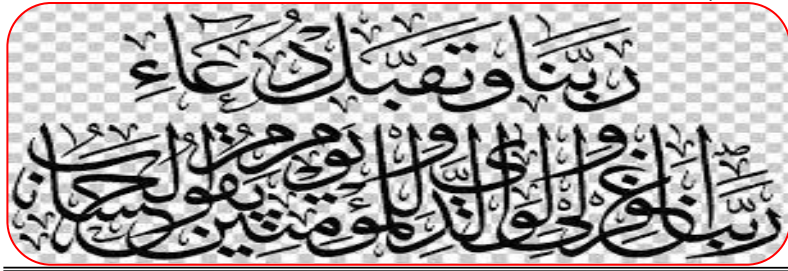 رَبَّنَا وَتَقَبَّلْ دُعَاءِ
رَبَّنَا اغْفِرْ لِي وَلِوَالِدَيَّ وَلِلْمُؤْمِنِينَ يَوْمَ يَقُومُ الْحِسَابُ